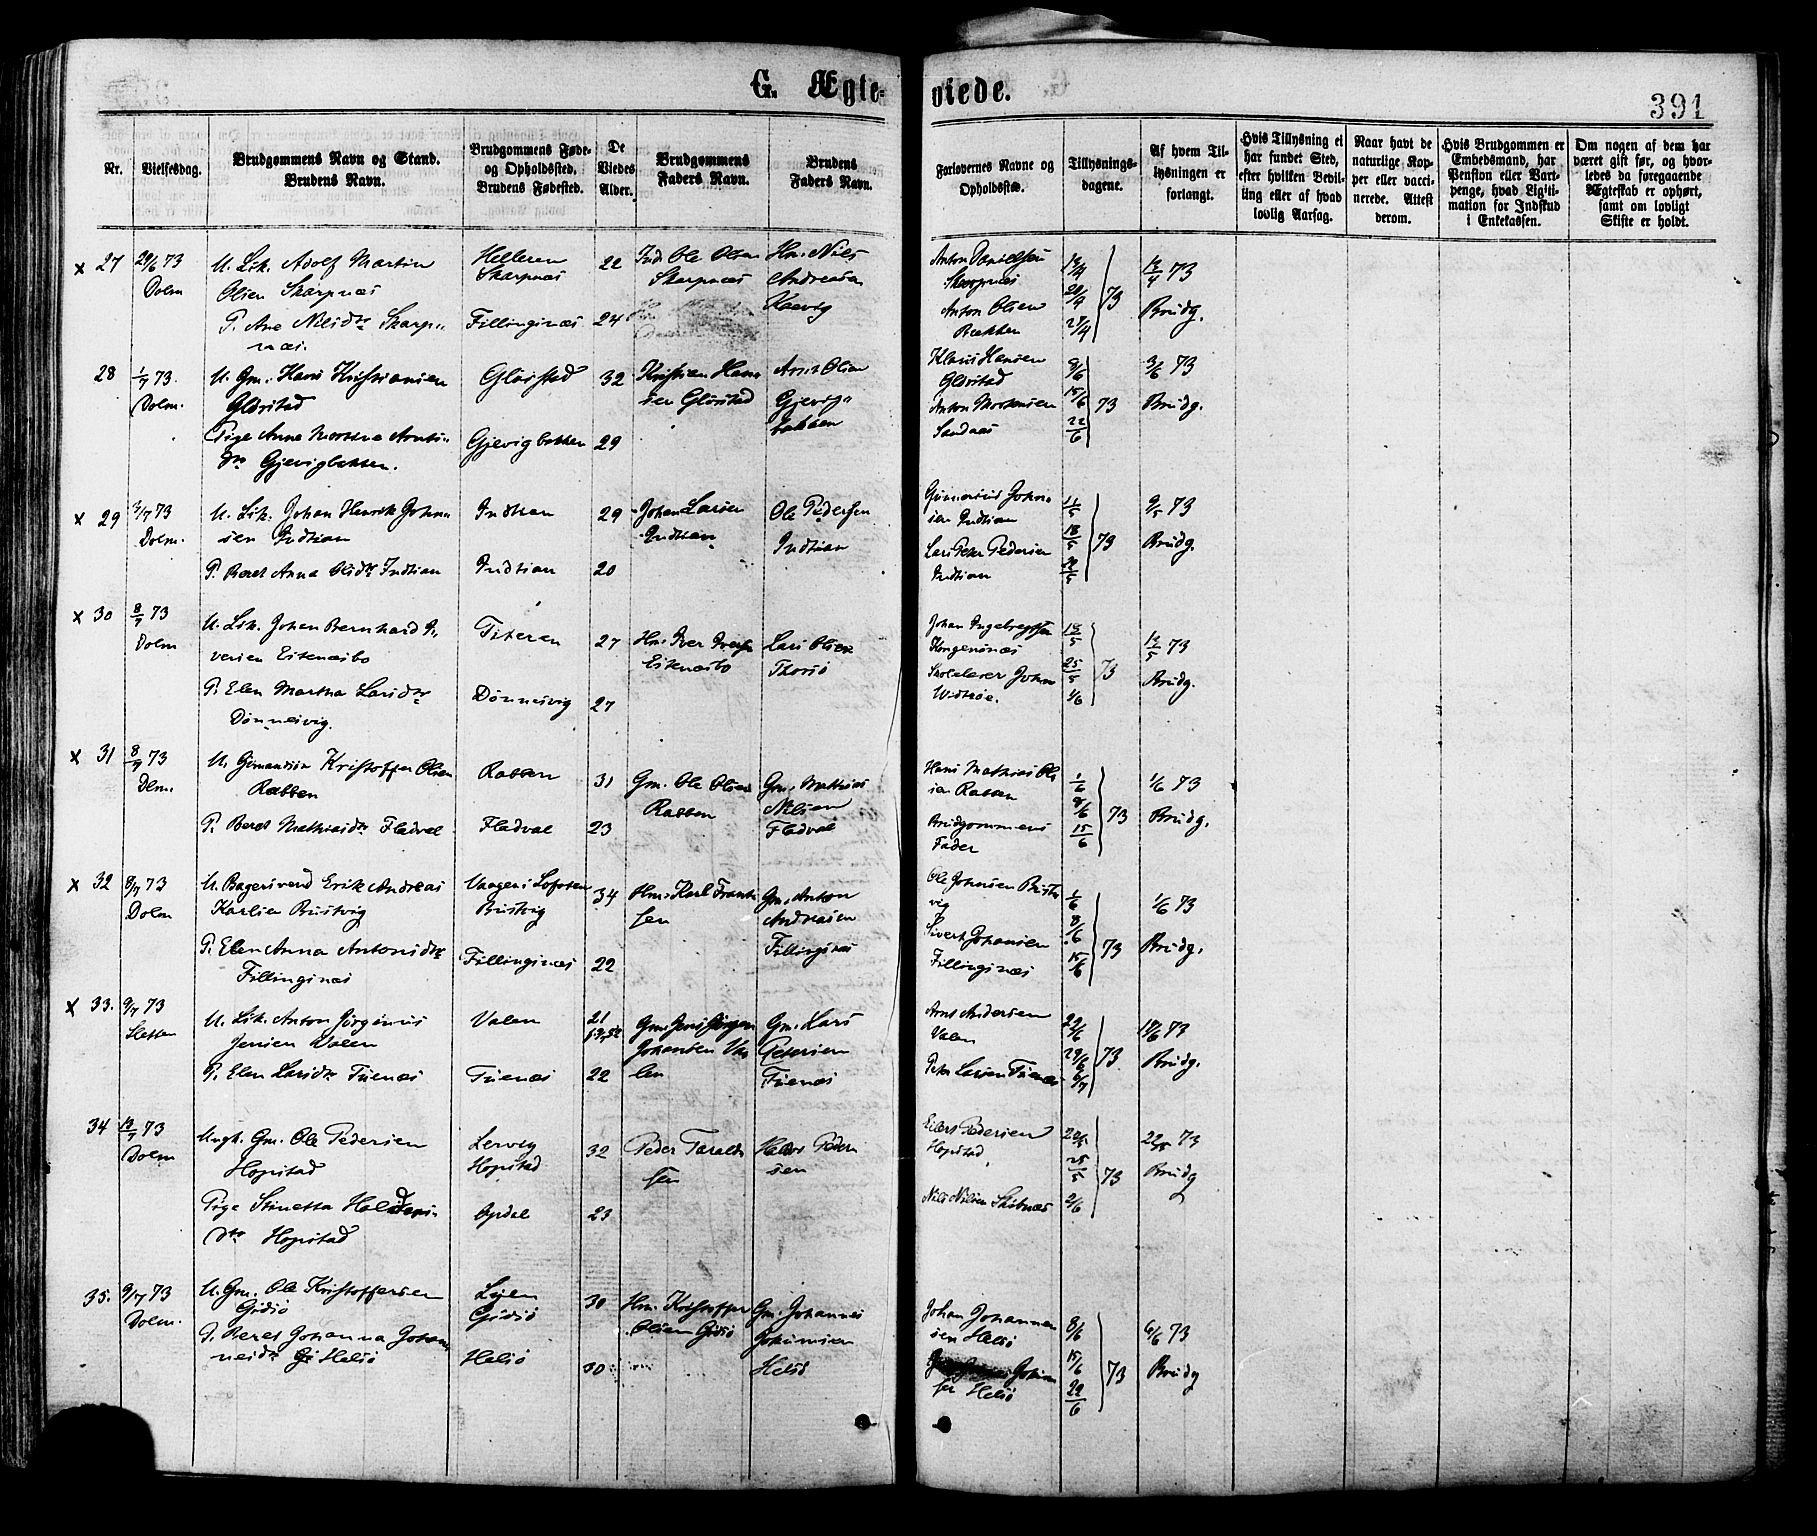 G. Ægte-
viede.
391
Nr.
Vielsesdag.
Brudgommens Navn og Stand.
Brudens Navn.
Brudgommens Føde-
og Opholdssted.
Brudens Fødested.
De
Viedes
Alder.
Brudgommens
Faders Navn.
Brudens
Faders Navn.
Forlovernes Navne og
Opholdssted.
Tillysnings-
dagene.
Af hvem Til-
lysningen er
forlangt.
Hvis Tillysning ei
har fundet Sted,
efter hvilken Bevil-
ling eller af hvad
lovlig Aarsag.
Naar havt de
naturlige Kop-
per eller vacci-
nerede. Attest
derom.
Hvis Brudgommen er
Embedsmand, har
Pension eller Vart-
penge, hvad Legiti-
mation for Indskud
i Enkekassen.
Om nogen af dem har
været gift før, og hvor-
ledes da foregaaende
Ægteskab er ophørt,
samt om lovligt
Skifte er holdt.
x 27 29/6 73 Dolm
U. Sk. Adolf Martin
Olsen Skarpnæs
P. Ane Nilsdtr Skarp-
næs.
Helleren
Skarpnæs
Fillingsnæs
22
24
Inds Ole Olsen
Skarpnæs
Hm. Nils
Andreasen
Kaavig
Anton Danielsen
Skarpnæs
Anton Olsen
Bækken
13/4 20/4 27/4 73
12/4 73
Brudg.
28 1/7 73. Dolm.
U. Gm. Hans Kristiansen
Glørstad
Pige Anna Martha Arnts-
dtr Gjevigbakken.
Glørstad
Gjevigbakken
32
29
Kristian Han-
sen Glørstad
Arnt Olsen
Gjevig-
bakken
Klaus Hansen
Glørstad
Anton Mortensen
Sandnæs
8/6 15/6 22/6 73
3/6 73
Brudg.
x 29 3/7 73 Dolm.
U. Sk. Johan Henrik Johan-
sen Indsian
P. Beret Anna Olsdtr Indsian
Indsian
Indsian
29
20
Johan Larsen
Indsian
Ole Pedersen
Indsian
Johan-
sen Indsian
Lars Peter Pedersen
Indsian
11/5 18/5 22/5 73
9/5 73
Brudg.
x 30 8/7 73 Dolm
U. Sk. Johan Bernhard I-
versen Eknæsbo
P. Elen Martha Larsdtr
Dønnesvig.
Titeran
Dønnesvig
27
27
Hm. Iver Iversen
Eknæsbo
Lars Olsen
Thorsø
Johan Ingebregtsen
Kongensnæs
Skolelærer Johan
Widsøe.
18/5 25/5 1/6 73
12/5 73
Brudg.
x 31 8/7 73 Dlm.
U. Kristoffer Olsen
Rabben
P. Beret Mathiasdtr Fladval
Rabben
Fladval
31
23
Gm. Ole Olsen
Rabben
Gm. Mathias
Nilsen
Fladval
Hans Mathias Ol-
sen Rabben
Brudgommens
Fader
1/6 8/6 15/6 73
1/6 73
Brudg.
x 32 8/7 73 Dolm
U. Bagersvend Erik Andreas
Karlsen Bustvig
P. Elen Anna Antonsdtr
Fillingsnæs
Vaagen i Lofoten
Bustvig
Fillingsnæs
34
22
Hm. Karl Frant-
sen
Gm. Anton
Andreasen
Fillingsnæs
Ole Johnsen Bust-
vig
Sivert Johansen
Fillingsnæs
1/6 8/6 15/6 73
1/6 73
Brudg.
x 33. 9/7 73 Sletten
U. Sk. Anton Jørginus
Jensen Valen
P. Elen Larsdtr Tuenæs
Valen
Tuenæs
21
22
Gm. Jens Jørgen
Johansen Va-
len
Gm. Lars
Petersen
Tuenæs
Arnt Andersen
Valen
Peter Larsen Tuenæs
22/6 29/6 6/7 73
18/6 73
Brudg.
34 13/7 73 Dolm
Ungk. Gm. Ole Pedersen
Hopstad
Pige Stinetta Haldors-
dtr Hopstad
Lervig
Hopstad
Opdal
32
23
Peder Tarald-
sen
Haldor Peder-
sen
Eilert Pedersen
Hopstad
Nils Nilsen Skibnæs
20/5 25/5 2/6 73
22/5 73
Brudg
35. 9/7 73 Dolm.
U. Gm. Ole Kristoffersen
Gidsø
P. Beret Johanna Johan-
nesdtr Helsø
Gidsø
Helsø
30
30
Hm. Kristoffer
Olsen Gidsø
Gm. Johannes
Johannesen
Helsø
Johan Johannes-
sen Helsø
Johan-
sen Helsø
8/6 15/6 22/6 73
6/6 73
Brudg